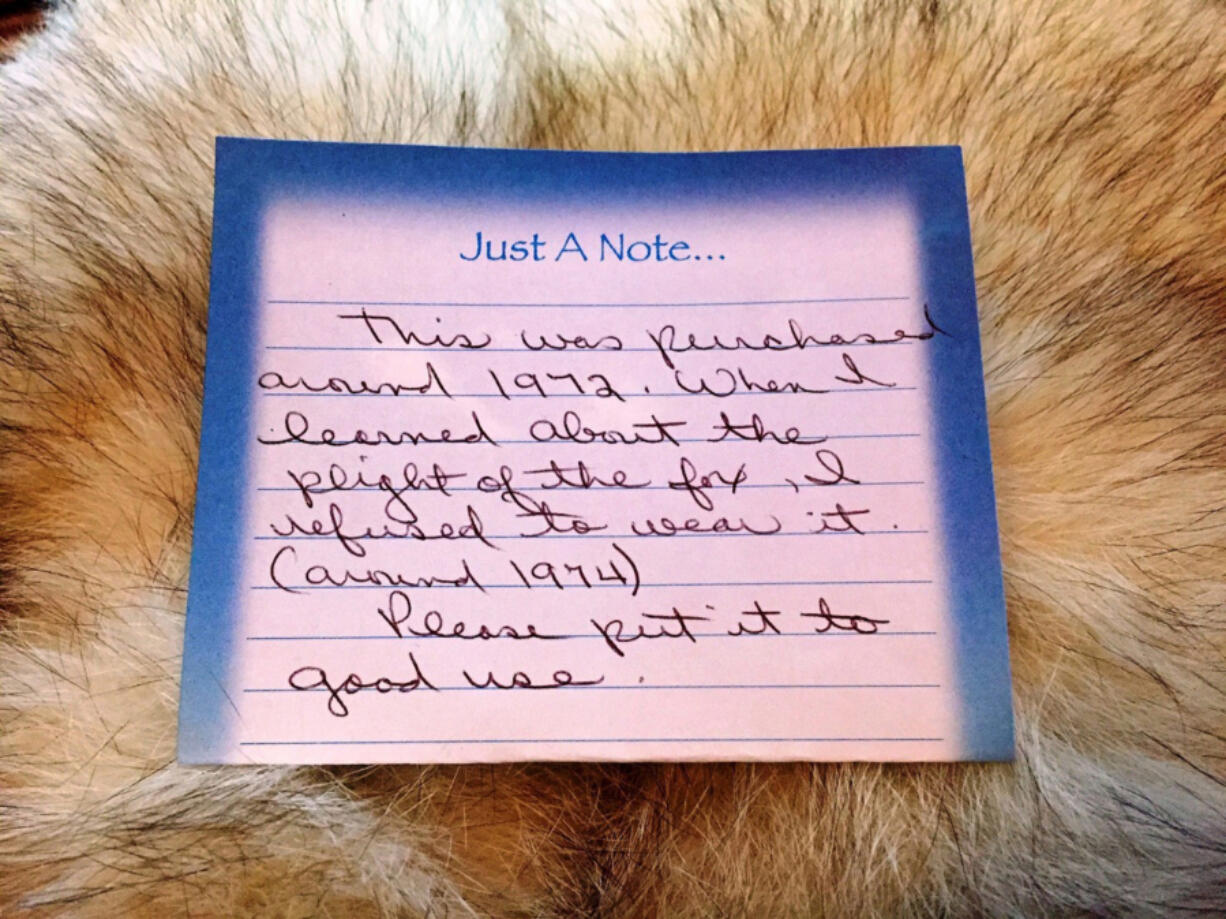 Just A Note...
This was purchased
around 1972. When I
learned about the
plight of the fox, I
refused to wear it.
(around 1974)
Please put it to
good use.